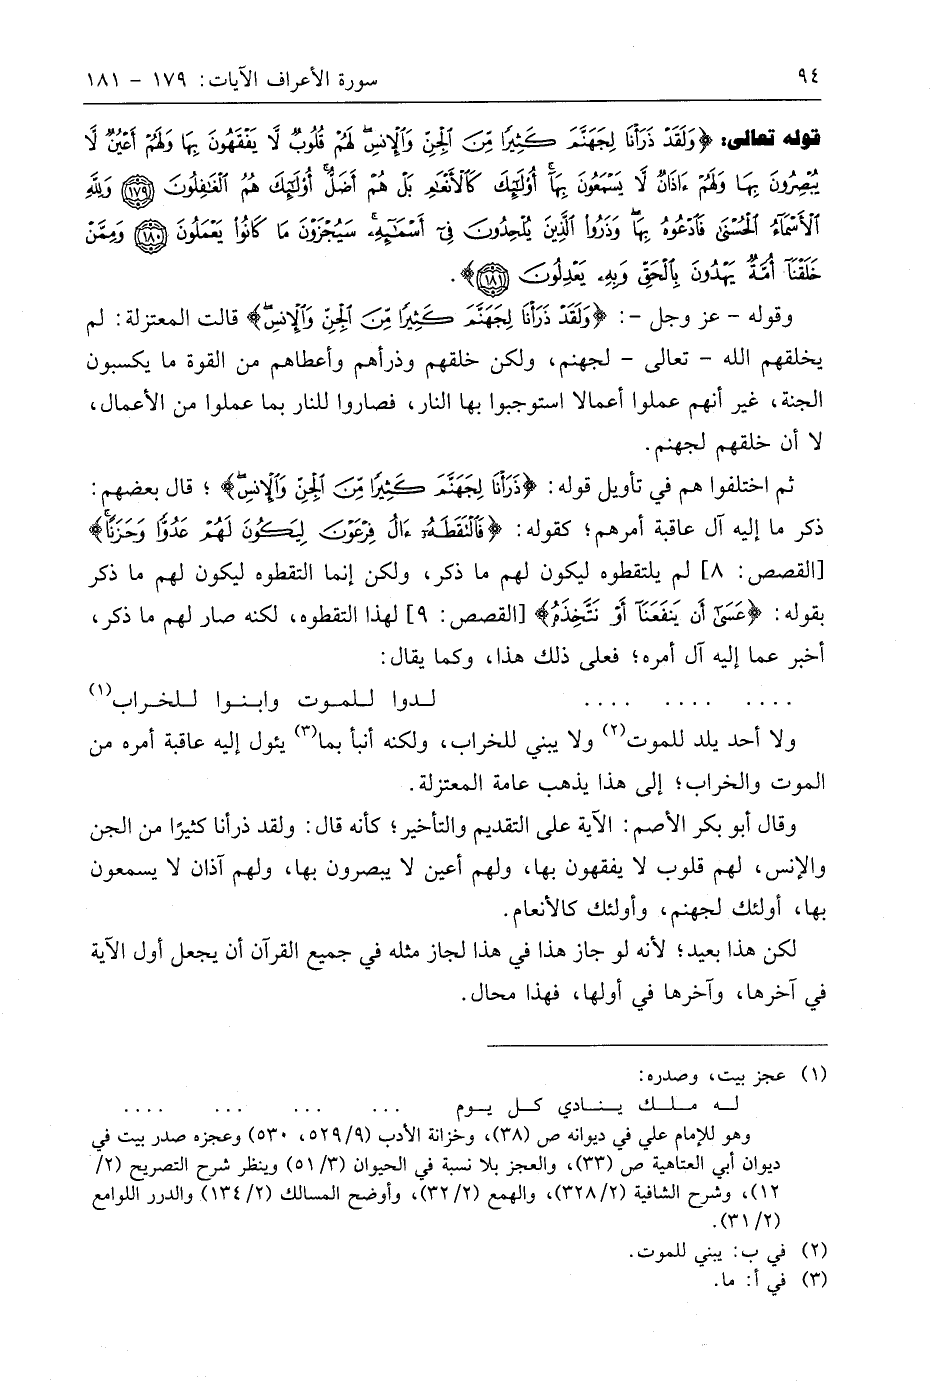 ٩٤
سورة الأعراف الآيات: ١٧٩ - ١٨١
قوله تعالى: ﴿وَلَقَدْ ذَرَأْنَا لِجَهَنَّمَ كَثِيرًا مِّنَ ٱلْجِنِّ وَٱلْإِنسِ لَهُمْ قُلُوبٌ لَّا يَفْقَهُونَ بِهَا وَلَهُمْ أَعْيُنٌ لَّا
يُبْصِرُونَ بِهَا وَلَهُمْ ءَاذَانٌ لَّا يَسْمَعُونَ بِهَا أُوْلَٰٓئِكَ كَٱلْأَنْعَٰمِ بَلْ هُمْ أَضَلُّ أُوْلَٰٓئِكَ هُمُ ٱلْغَٰفِلُونَ ١٧٩ وَلِلَّهِ
ٱلْأَسْمَآءُ ٱلْحُسْنَىٰ فَٱدْعُوهُ بِهَا وَذَرُوا۟ ٱلَّذِينَ يُلْحِدُونَ فِىٓ أَسْمَٰٓئِهِۦ سَيُجْزَوْنَ مَا كَانُوا۟ يَعْمَلُونَ ١٨٠ وَمِمَّنْ
خَلَقْنَآ أُمَّةٌ يَهْدُونَ بِٱلْحَقِّ وَبِهِۦ يَعْدِلُونَ ١٨١﴾.
وقوله - عز وجل -: ﴿وَلَقَدْ ذَرَأْنَا لِجَهَنَّمَ كَثِيرًا مِّنَ ٱلْجِنِّ وَٱلْإِنسِ﴾ قالت المعتزلة: لم
يخلقهم الله - تعالى - لجهنم، ولكن خلقهم وذرأهم وأعطاهم من القوة ما يكسبون
الجنة، غير أنهم عملوا أعمالا استوجبوا بها النار، فصاروا للنار بما عملوا من الأعمال،
لا أن خلقهم لجهنم.
ثم اختلفوا هم في تأويل قوله: ﴿ذَرَأْنَا لِجَهَنَّمَ كَثِيرًا مِّنَ ٱلْجِنِّ وَٱلْإِنسِ﴾ ؛ قال بعضهم:
ذكر ما إليه آل عاقبة أمرهم؛ كقوله: ﴿فَٱلْتَقَطَهُۥٓ ءَالُ فِرْعَوْنَ لِيَكُونَ لَهُمْ عَدُوًّا وَحَزَنًا﴾
[القصص: ٨] لم يلتقطوه ليكون لهم ما ذكر، ولكن إنما التقطوه ليكون لهم ما ذكر
بقوله: ﴿عَسَىٰٓ أَن يَنفَعَنَآ أَوْ نَتَّخِذَهُ﴾ [القصص: ٩] لهذا التقطوه، لكنه صار لهم ما ذكر،
أخبر عما إليه آل أمره؛ فعلى ذلك هذا، وكما يقال:
.... .... .... .... لـدوا للـمـوت وابـنـوا للـخـراب(١)
ولا أحد يلد للموت(٢) ولا يبني للخراب، ولكنه أنبأ بما(٣) يئول إليه عاقبة أمره من
الموت والخراب؛ إلى هذا يذهب عامة المعتزلة.
وقال أبو بكر الأصم: الآية على التقديم والتأخير؛ كأنه قال: ولقد ذرأنا كثيرًا من الجن
والإنس، لهم قلوب لا يفقهون بها، ولهم أعين لا يبصرون بها، ولهم آذان لا يسمعون
بها، أولئك لجهنم، وأولئك كالأنعام.
لكن هذا بعيد؛ لأنه لو جاز هذا في هذا لجاز مثله في جميع القرآن أن يجعل أول الآية
في آخرها، وآخرها في أولها، فهذا محال.
(١) عجز بيت، وصدره:
لـه مـلـك يـنـادي كـل يـوم ... ... ... .... ....
وهو للإمام علي في ديوانه ص (٣٨)، وخزانة الأدب (٥٢٩/٩، ٥٣٠) وعجزه صدر بيت في
ديوان أبي العتاهية ص (٣٣)، والعجز بلا نسبة في الحيوان (٥١/٣) وينظر شرح التصريح (٢/
١٢)، وشرح الشافية (٣٢٨/٢)، والهمع (٣٢/٢)، وأوضح المسالك (١٣٤/٢) والدرر اللوامع
(٣١/٢).
(٢) في ب: يبني للموت.
(٣) في أ: ما.